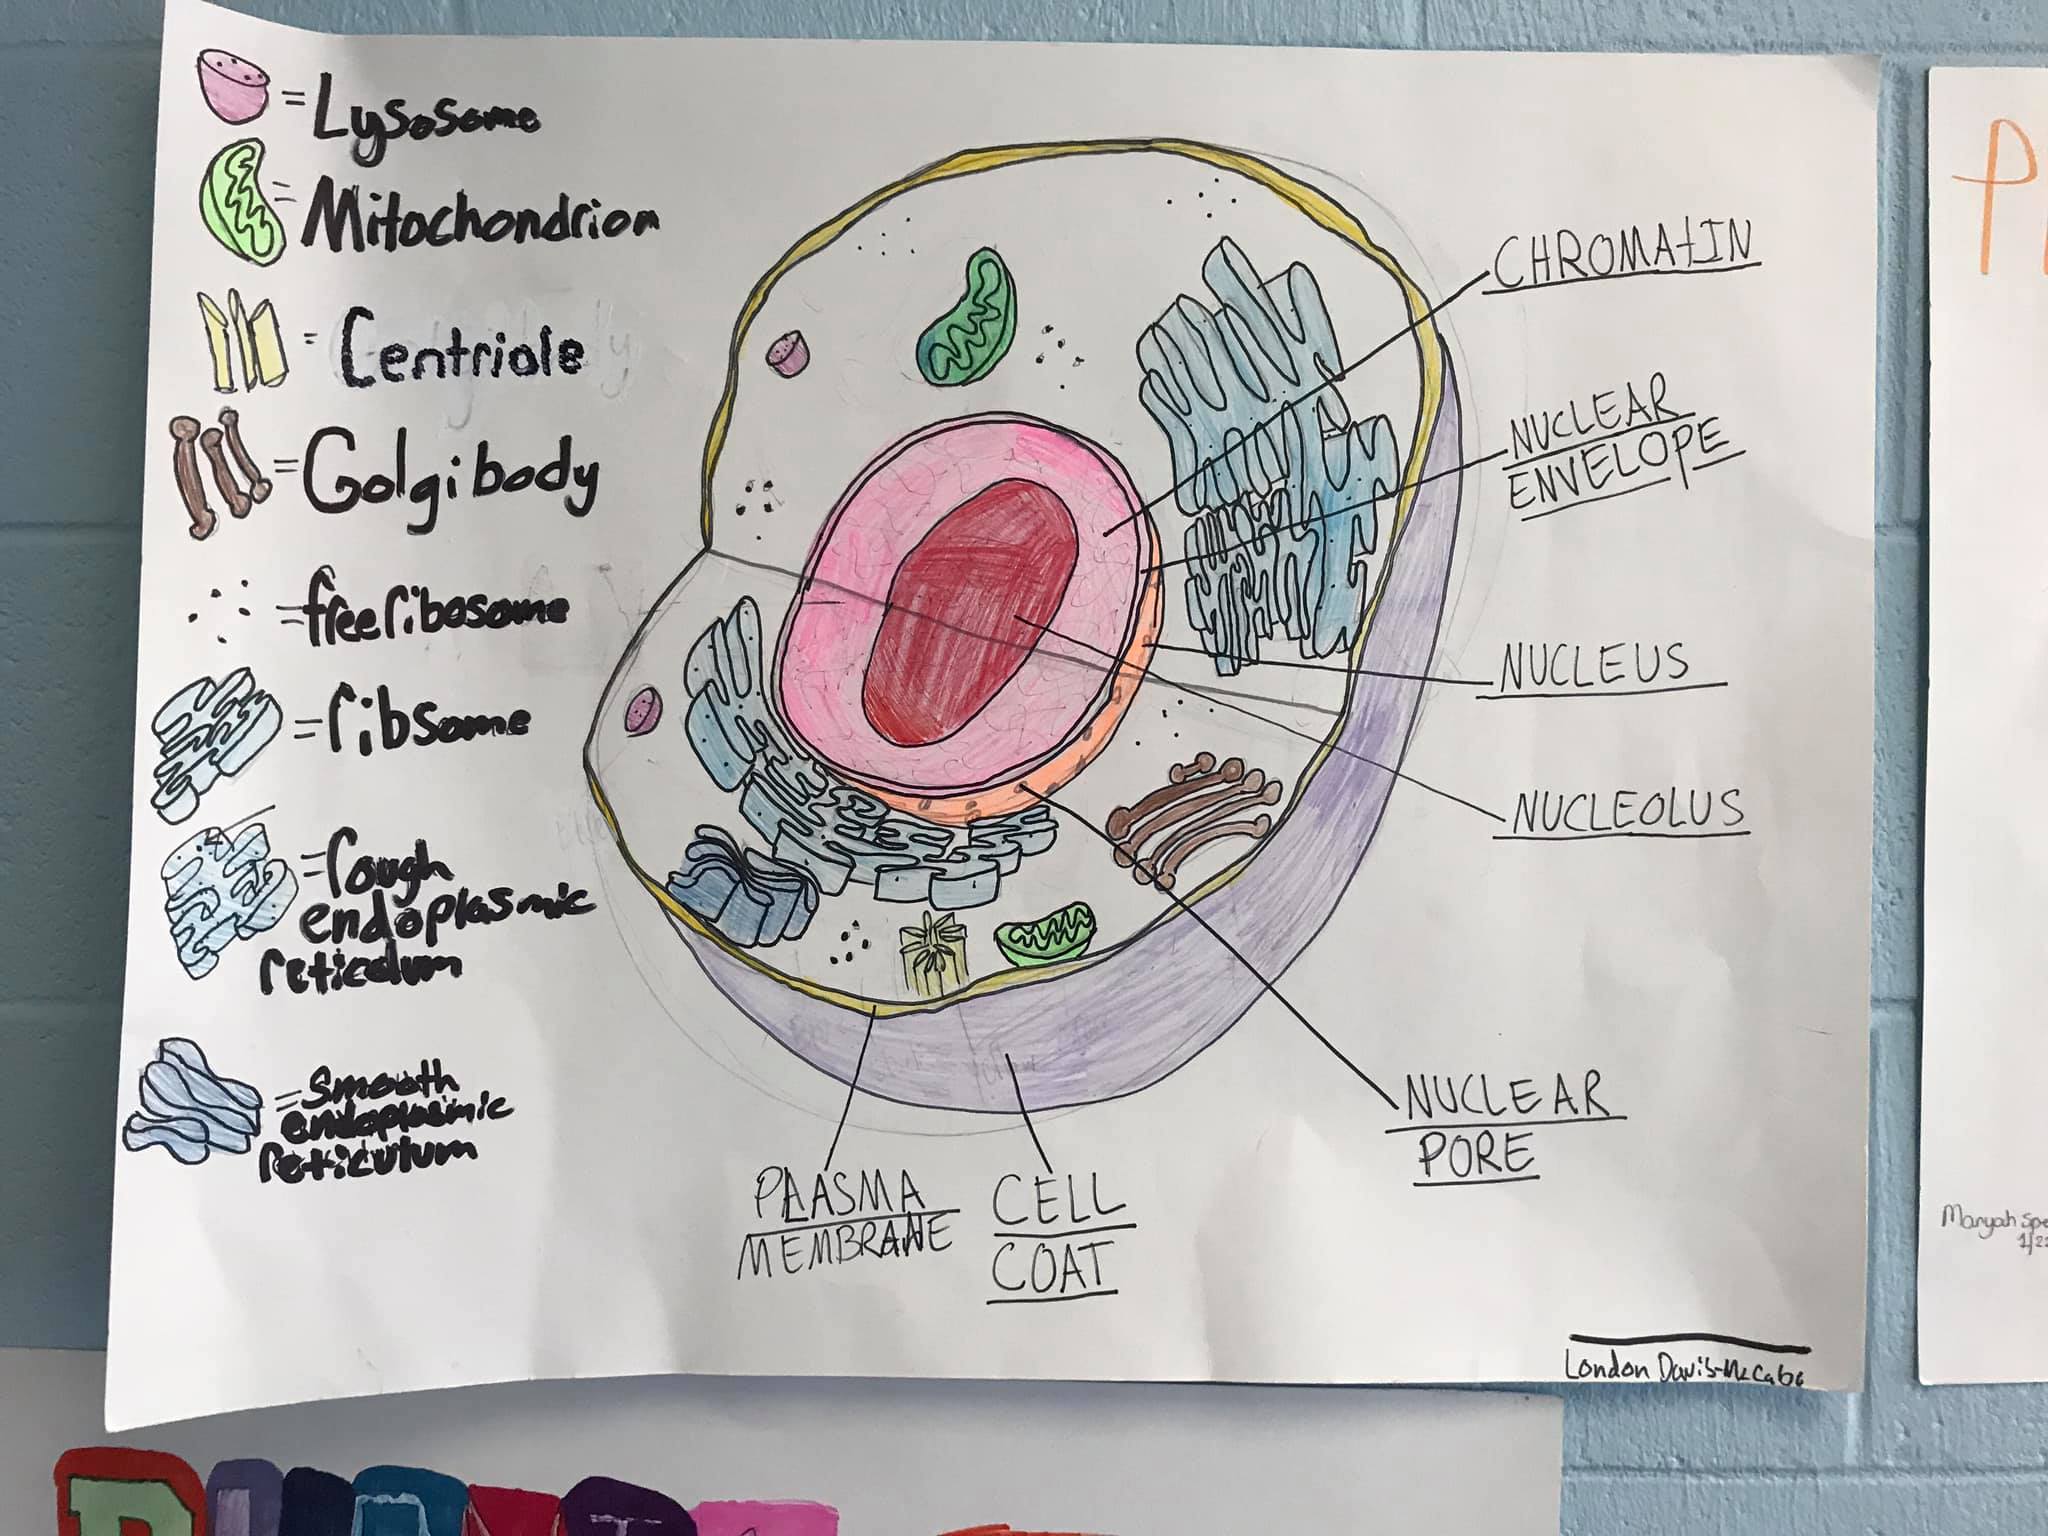 = Lysosome
= Mitochondrion
= Centriole
= Golgi body
= free ribosome
= ribsome
= rough
endoplasmic
reticulum
= Smooth
endoplasmic
reticulum
CHROMAtIN
NUCLEAR
ENVELOPE
NUCLEUS
NUCLEOLUS
NUCLEAR
PORE
PLASMA
MEMBRANE
CELL
COAT
London Davis-McCabe
Maryah